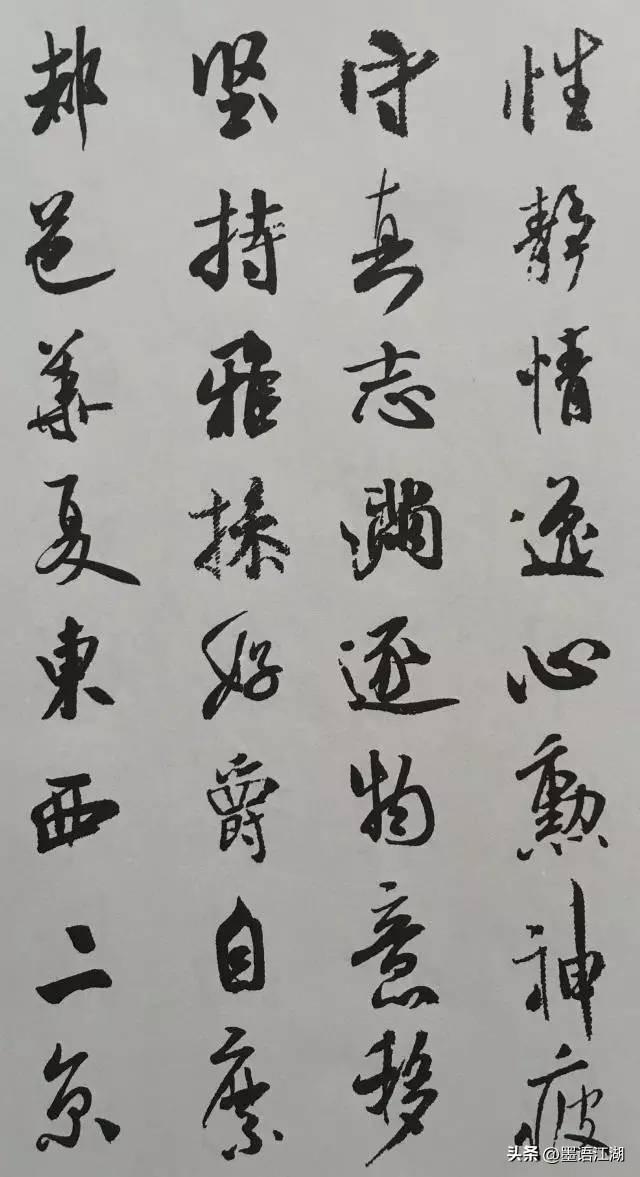 性靜情逸心勳神疲
守真志滿逐物意移
坚持雅操好爵自縻
都邑華夏東西二京
头条 @墨语江湖